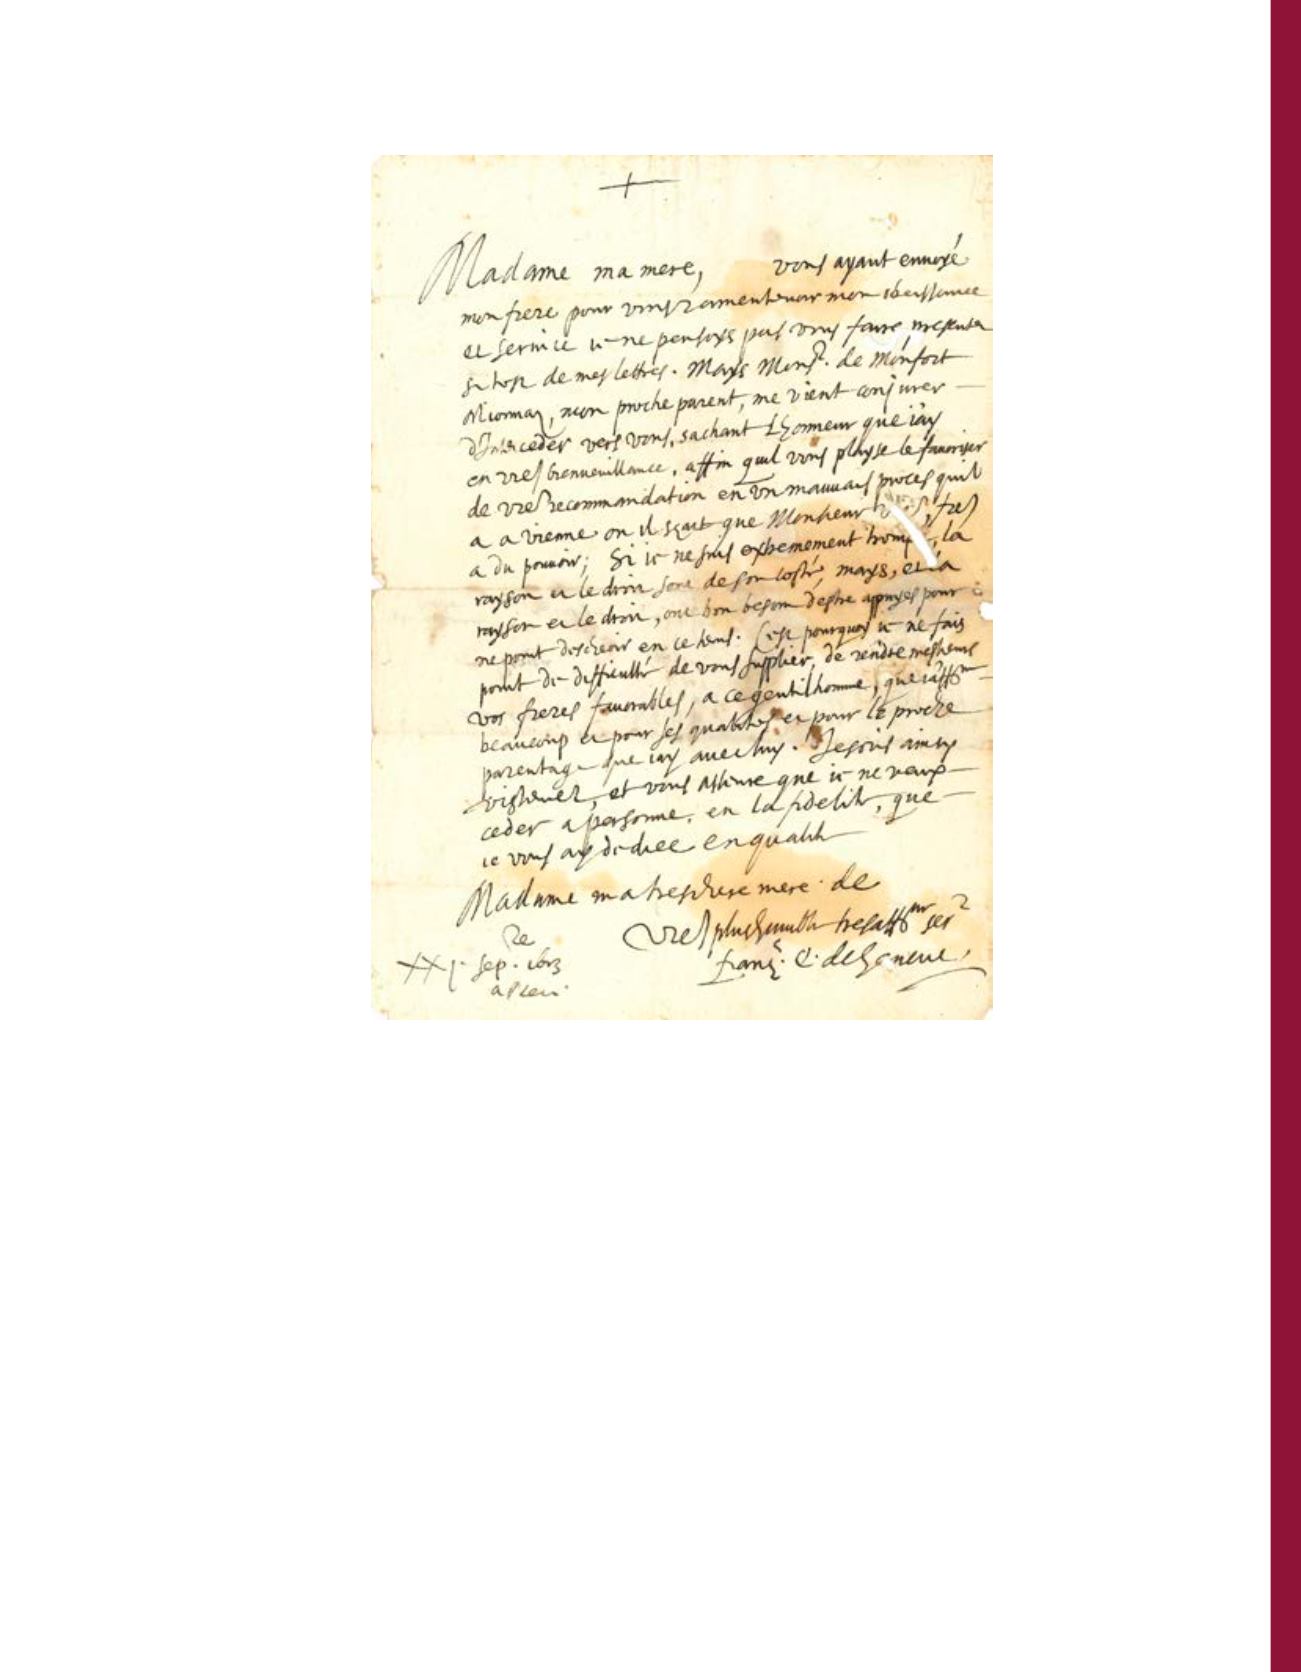 Madame ma mere, vous ayant envoyé
mon frere pour vous ramentevoir mon obeissance
et service ie ne pensoys pas vous faire presenter
si tost de mes lettres. Mays Monsr. de Monfort
Miormaz, mon proche parent, me vient conjurer
d'Interceder vers vous, sachant Lhonneur que iay
en vre bienneuillance, affin quil vous playse le fauoriser
de vre recommandation en un mauuais proces quil
a a vienne ou il sçait que Monsieur fre
a du pouuoir; Si ie ne suis extremement tromp , la
rayson et le droit sont de son costé, mays, et la
rayson et le droit, ont bon besoin destre appuyés pour
ne point descheoir en ce tems. Cest pourquoy ie ne fais
point de difficulté de vous supplier, de rendre messieurs
vos freres fauorables, a ce gentilhomme, que iaffne
beaucoup et pour ses qualités et pour le proche
parentage que iay auec luy. Je suis ainsy
et vous asseure que ie ne veux
ceder a personne, en la fidelité, que
ie vous ay dediee en qualité
Madame ma treschere mere de
Vre plus humble tresaffnné ser
franç. E. de Geneve,
XXI. sep. 1613